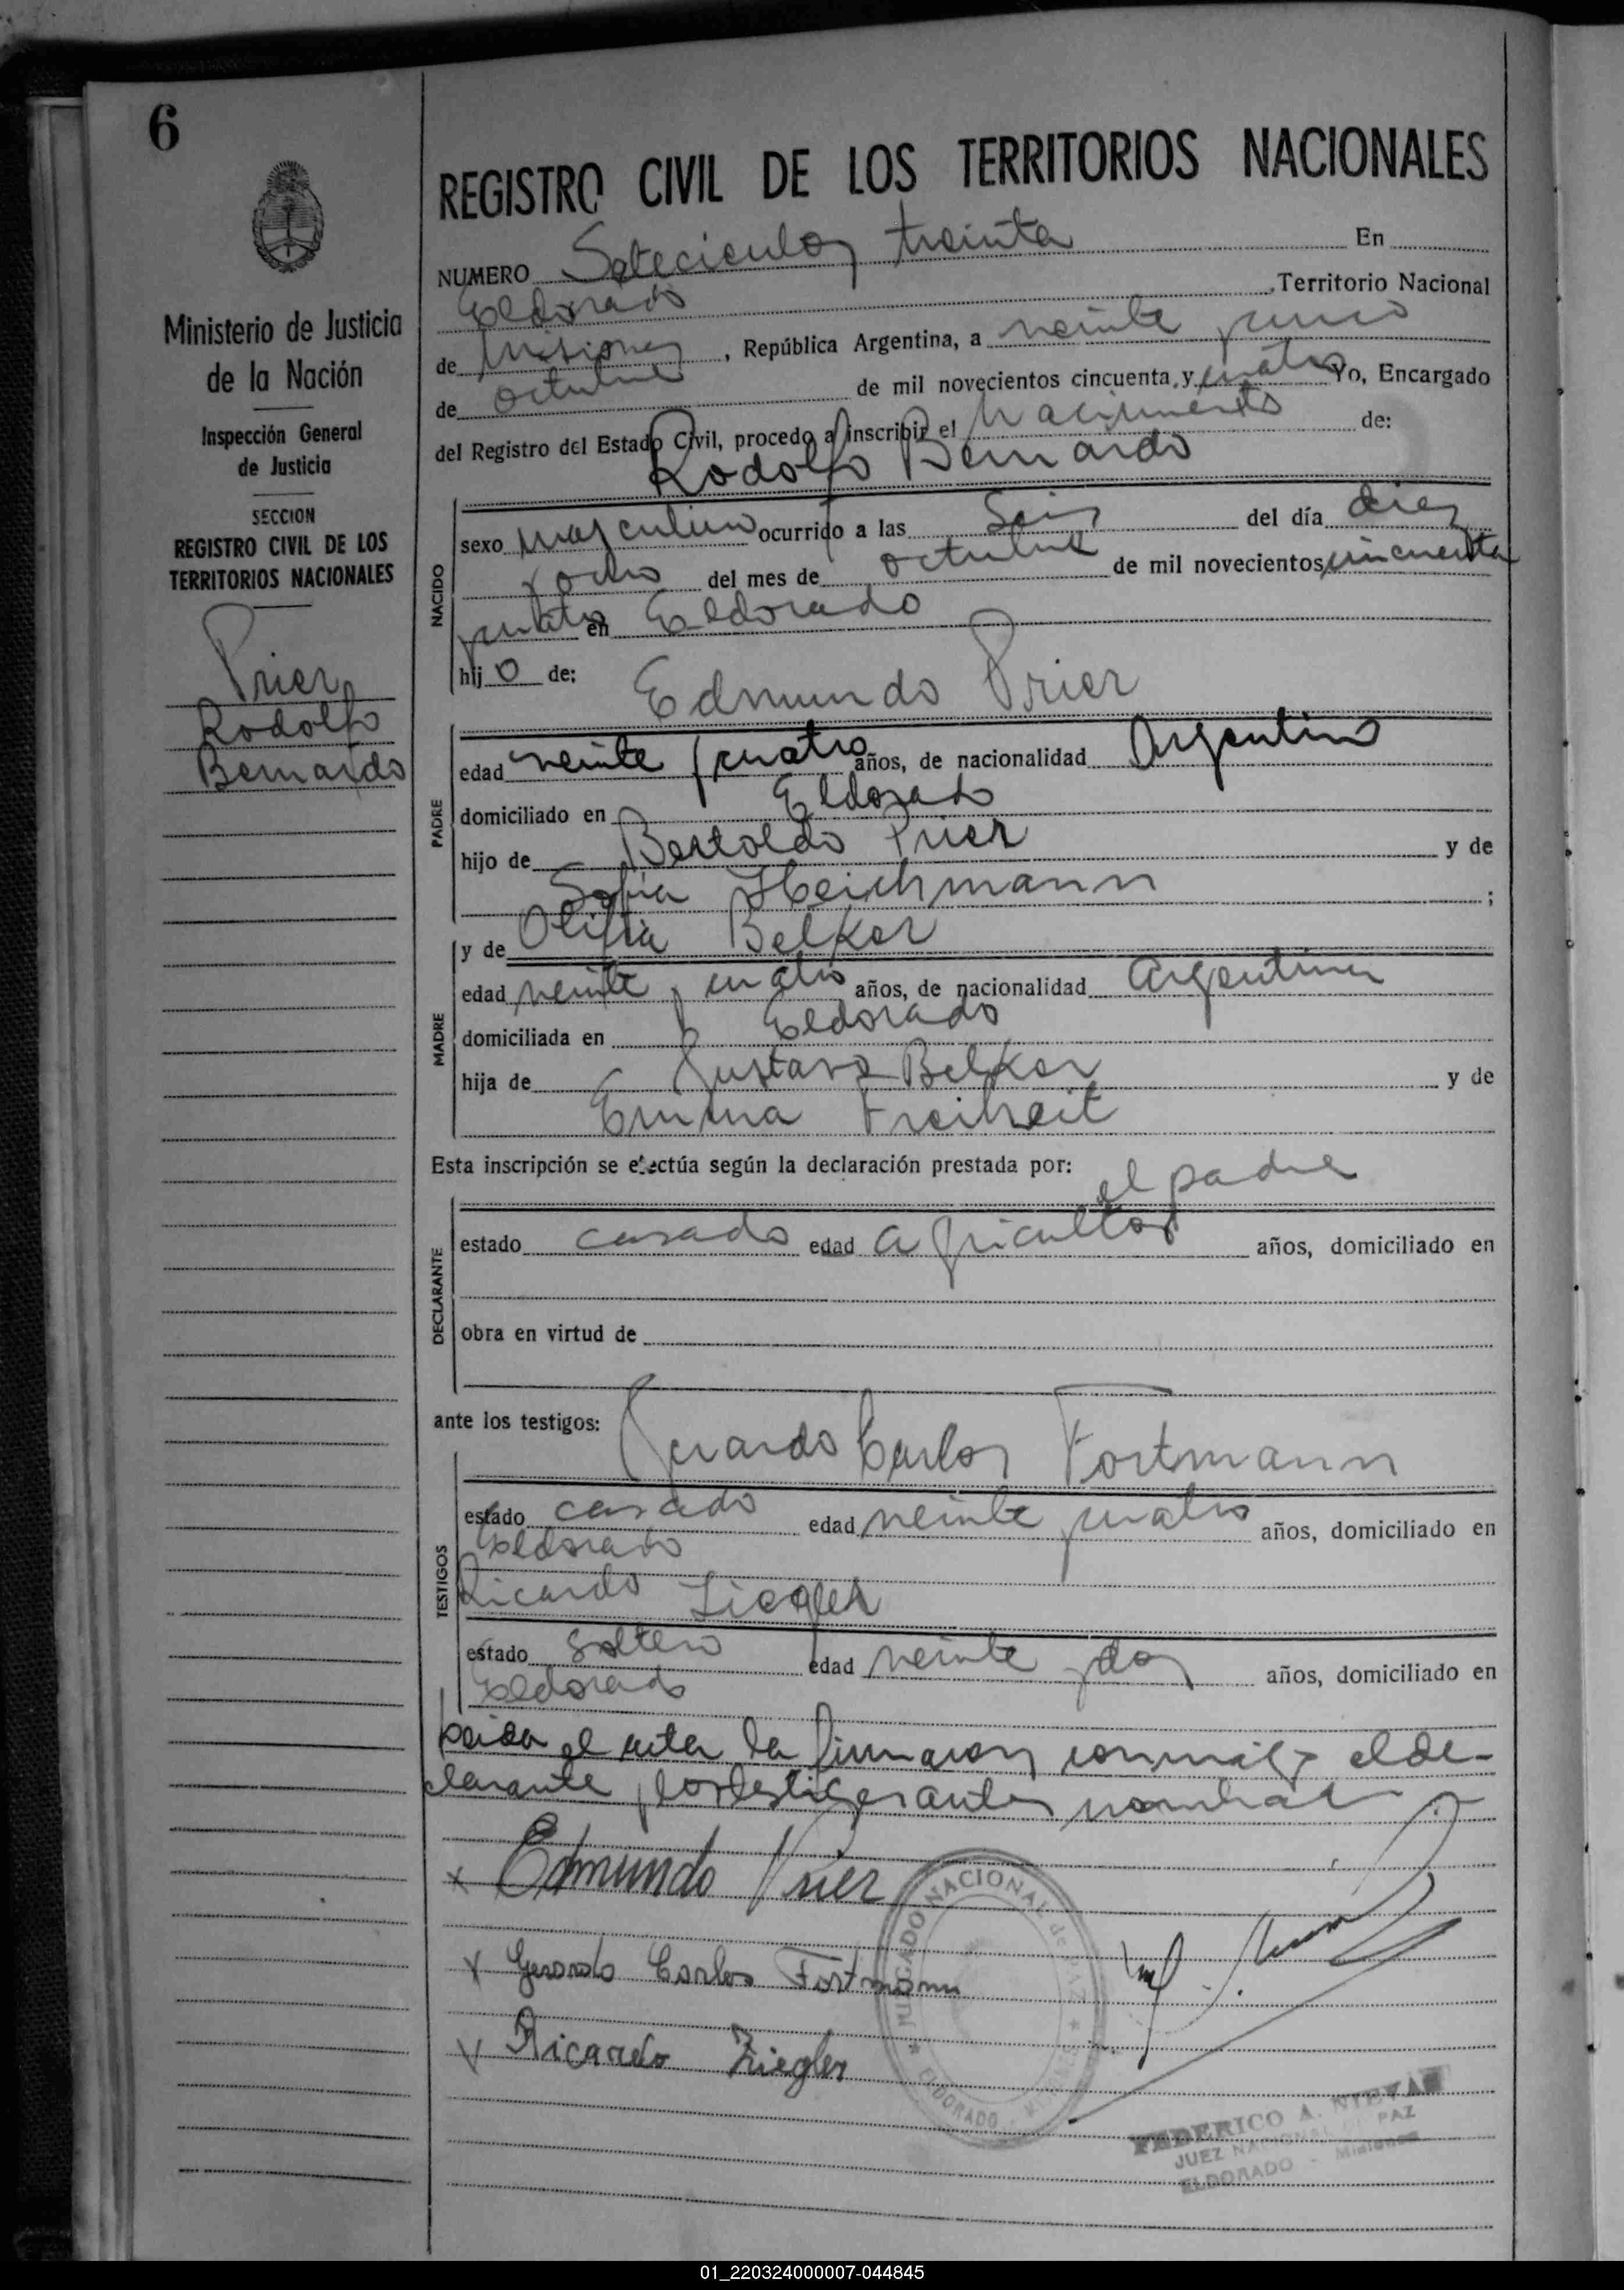 6
Ministerio de Justicia
de la Nación
Inspección General
de Justicia
SECCION
REGISTRO CIVIL DE LOS
TERRITORIOS NACIONALES
Prier
Rodolfo
Bernardo
REGISTRO CIVIL DE LOS TERRITORIOS NACIONALES
NUMERO Setecientos treinta En
Eldorado Territorio Nacional
de Misiones, República Argentina, a veinte y cinco
de octubre de mil novecientos cincuenta y cuatro Yo, Encargado
del Registro del Estado Civil, procedo a inscribir el Nacimiento de:
Rodolfo Bernardo
NACIDO
sexo masculino ocurrido a las Seis del día diez
y ocho del mes de octubre de mil novecientos cincuenta
y cuatro en Eldorado
hijo de: Edmundo Prier
PADRE
edad veinte y cuatro años, de nacionalidad Argentino
domiciliado en Eldorado
hijo de Bertoldo Prier y de
Sofia Heichmann ;
y de Olifia Belker
MADRE
edad veinte y cuatro años, de nacionalidad Argentina
domiciliada en Eldorado
hija de Gustavo Belker y de
Emma Freiheit
Esta inscripción se efectúa según la declaración prestada por: el padre
DECLARANTE
estado casado edad agricultor años, domiciliado en
obra en virtud de
ante los testigos: Gerardo Carlos Fortmann
TESTIGOS
estado casado edad veinte y cuatro años, domiciliado en
Eldorado
Ricardo Ziegler
estado soltero edad veinte y dos años, domiciliado en
Eldorado
Leida el acta la firmaron conmigo el de-
clarante y los testigos antes nombrados
x Edmundo Prier
x Gerardo Carlos Fortmann
x Ricardo Ziegler
JUZGADO NACIONAL de PAZ
* ELDORADO - MISIONES *
FEDERICO A. NIEVAS
JUEZ NACIONAL DE PAZ
ELDORADO - Misiones
01_220324000007-044845